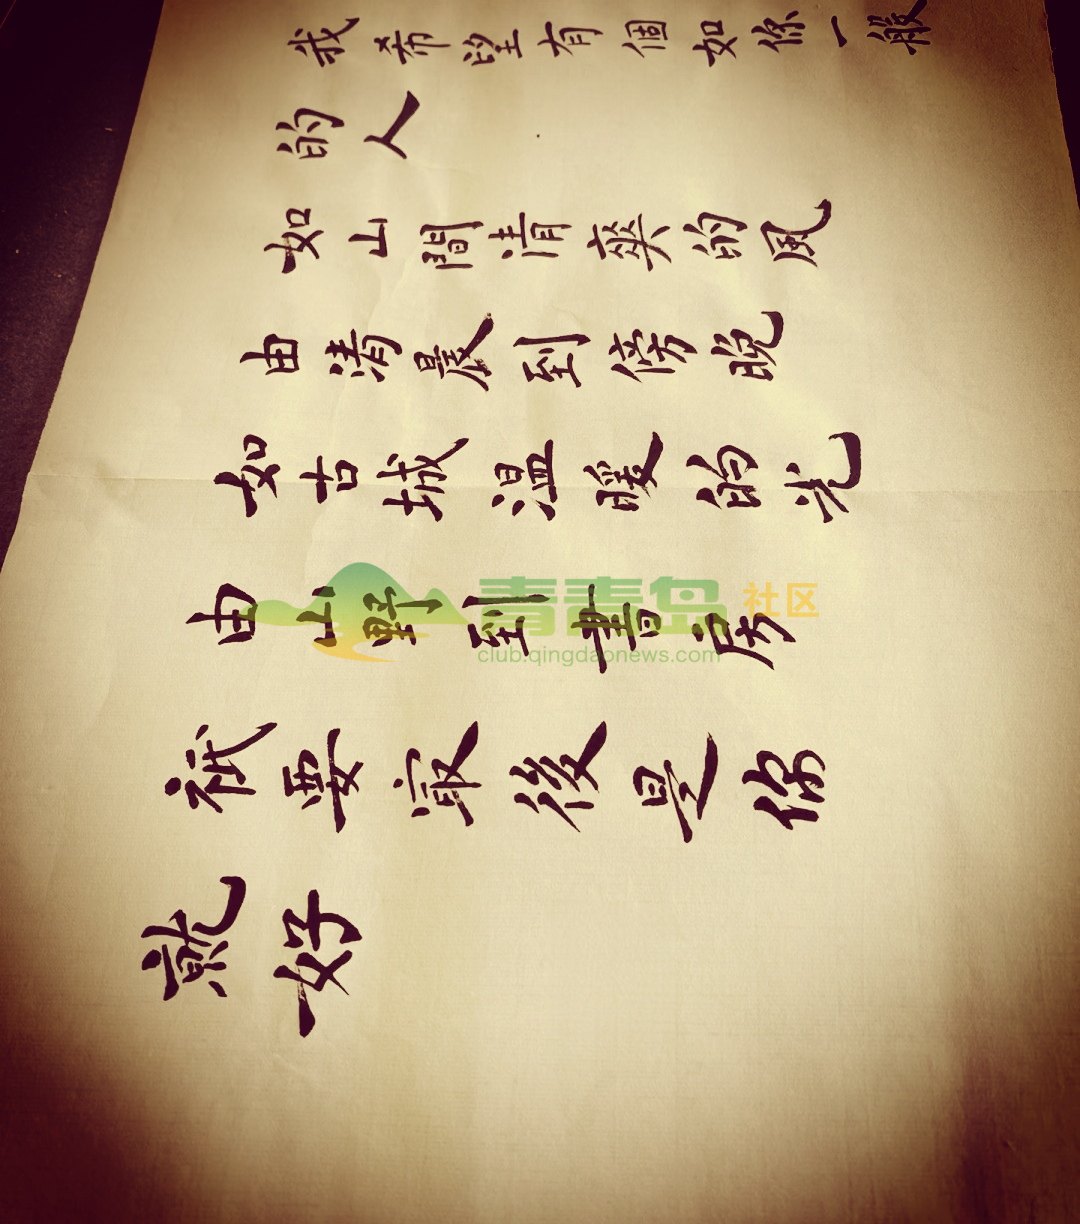 我希望有個如你一般
的人
如山間清爽的風
由清晨到傍晚
如古城溫暖的光
由山野到書房
祇要最後是你
就好
青青岛社区
club.qingdaonews.com